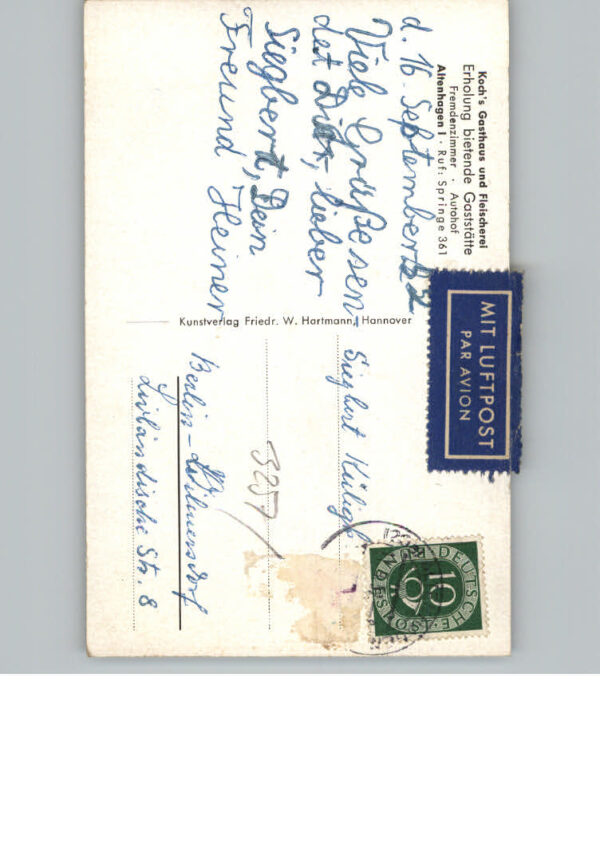 Koch's Gasthaus und Fleischerei
Erholung bietende Gaststätte
Fremdenzimmer · Autohof
Altenhagen I · Ruf: Springe 361
d. 16. September 52
Viele Grüße sen-
det Dir, lieber
Siegbert, Dein
Freund Heiner
Kunstverlag Friedr. W. Hartmann, Hannover
MIT LUFTPOST
PAR AVION
DEUTSCHE BUNDESPOST
10
Siegbert
3257
Berlin-Wilmersdorf
Livländische Str. 8